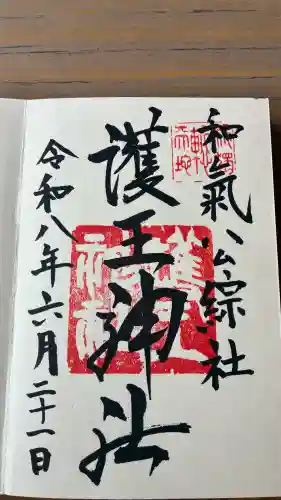 和氣公綜社
護王神社
令和八年六月二十一日